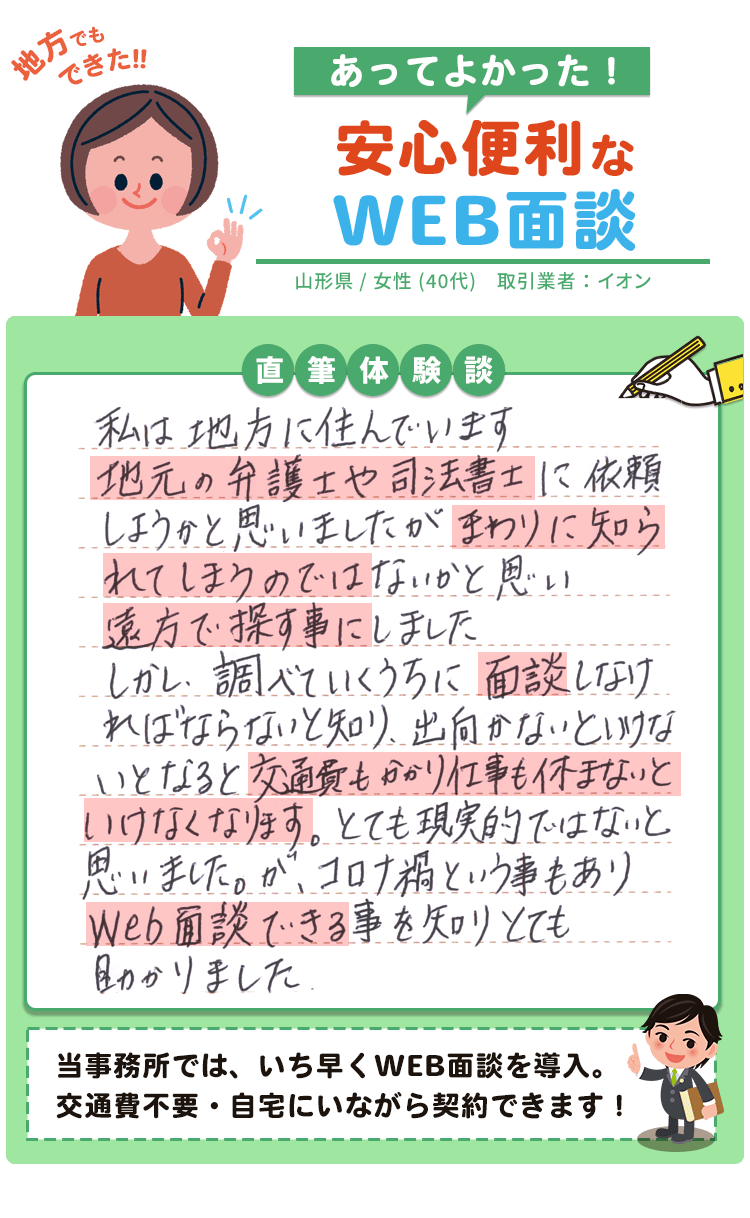 地方でも
できた!!
あってよかった！
安心便利な
WEB面談
山形県 / 女性 (40代)　取引業者：イオン
直筆体験談
私は地方に住んでいます
地元の弁護士や司法書士に依頼
しようかと思いましたがまわりに知ら
れてしまうのではないかと思い
遠方で探す事にしました
しかし、調べていくうちに面談しなけ
ればならないと知り、出向かないといけな
いとなると交通費もかかり仕事も休まないと
いけなくなります。とても現実的ではないと
思いました。が、コロナ禍という事もあり
Web面談できる事を知りとても
助かりました.
当事務所では、いち早くWEB面談を導入。
交通費不要・自宅にいながら契約できます！